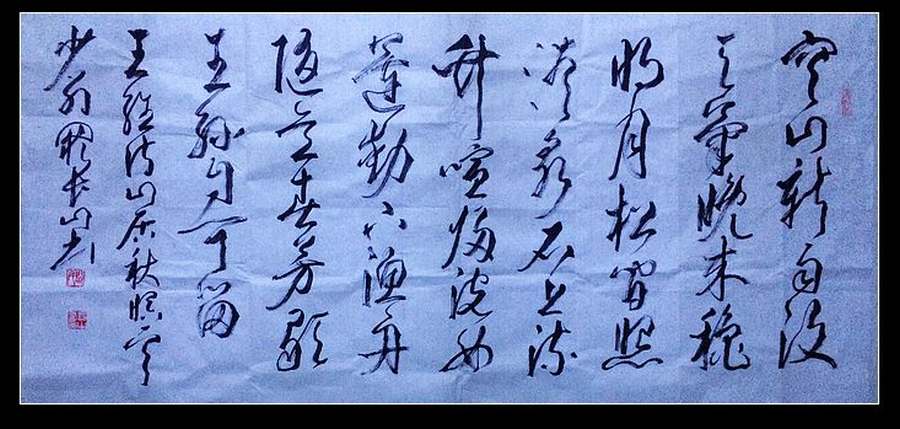 空山新雨後
天氣晚來穐
明月松間照
清泉石上流
竹喧歸浣女
蓮動下漁舟
隨意春芳歇
王孫自可留
王維詩山居秋暝
長山书